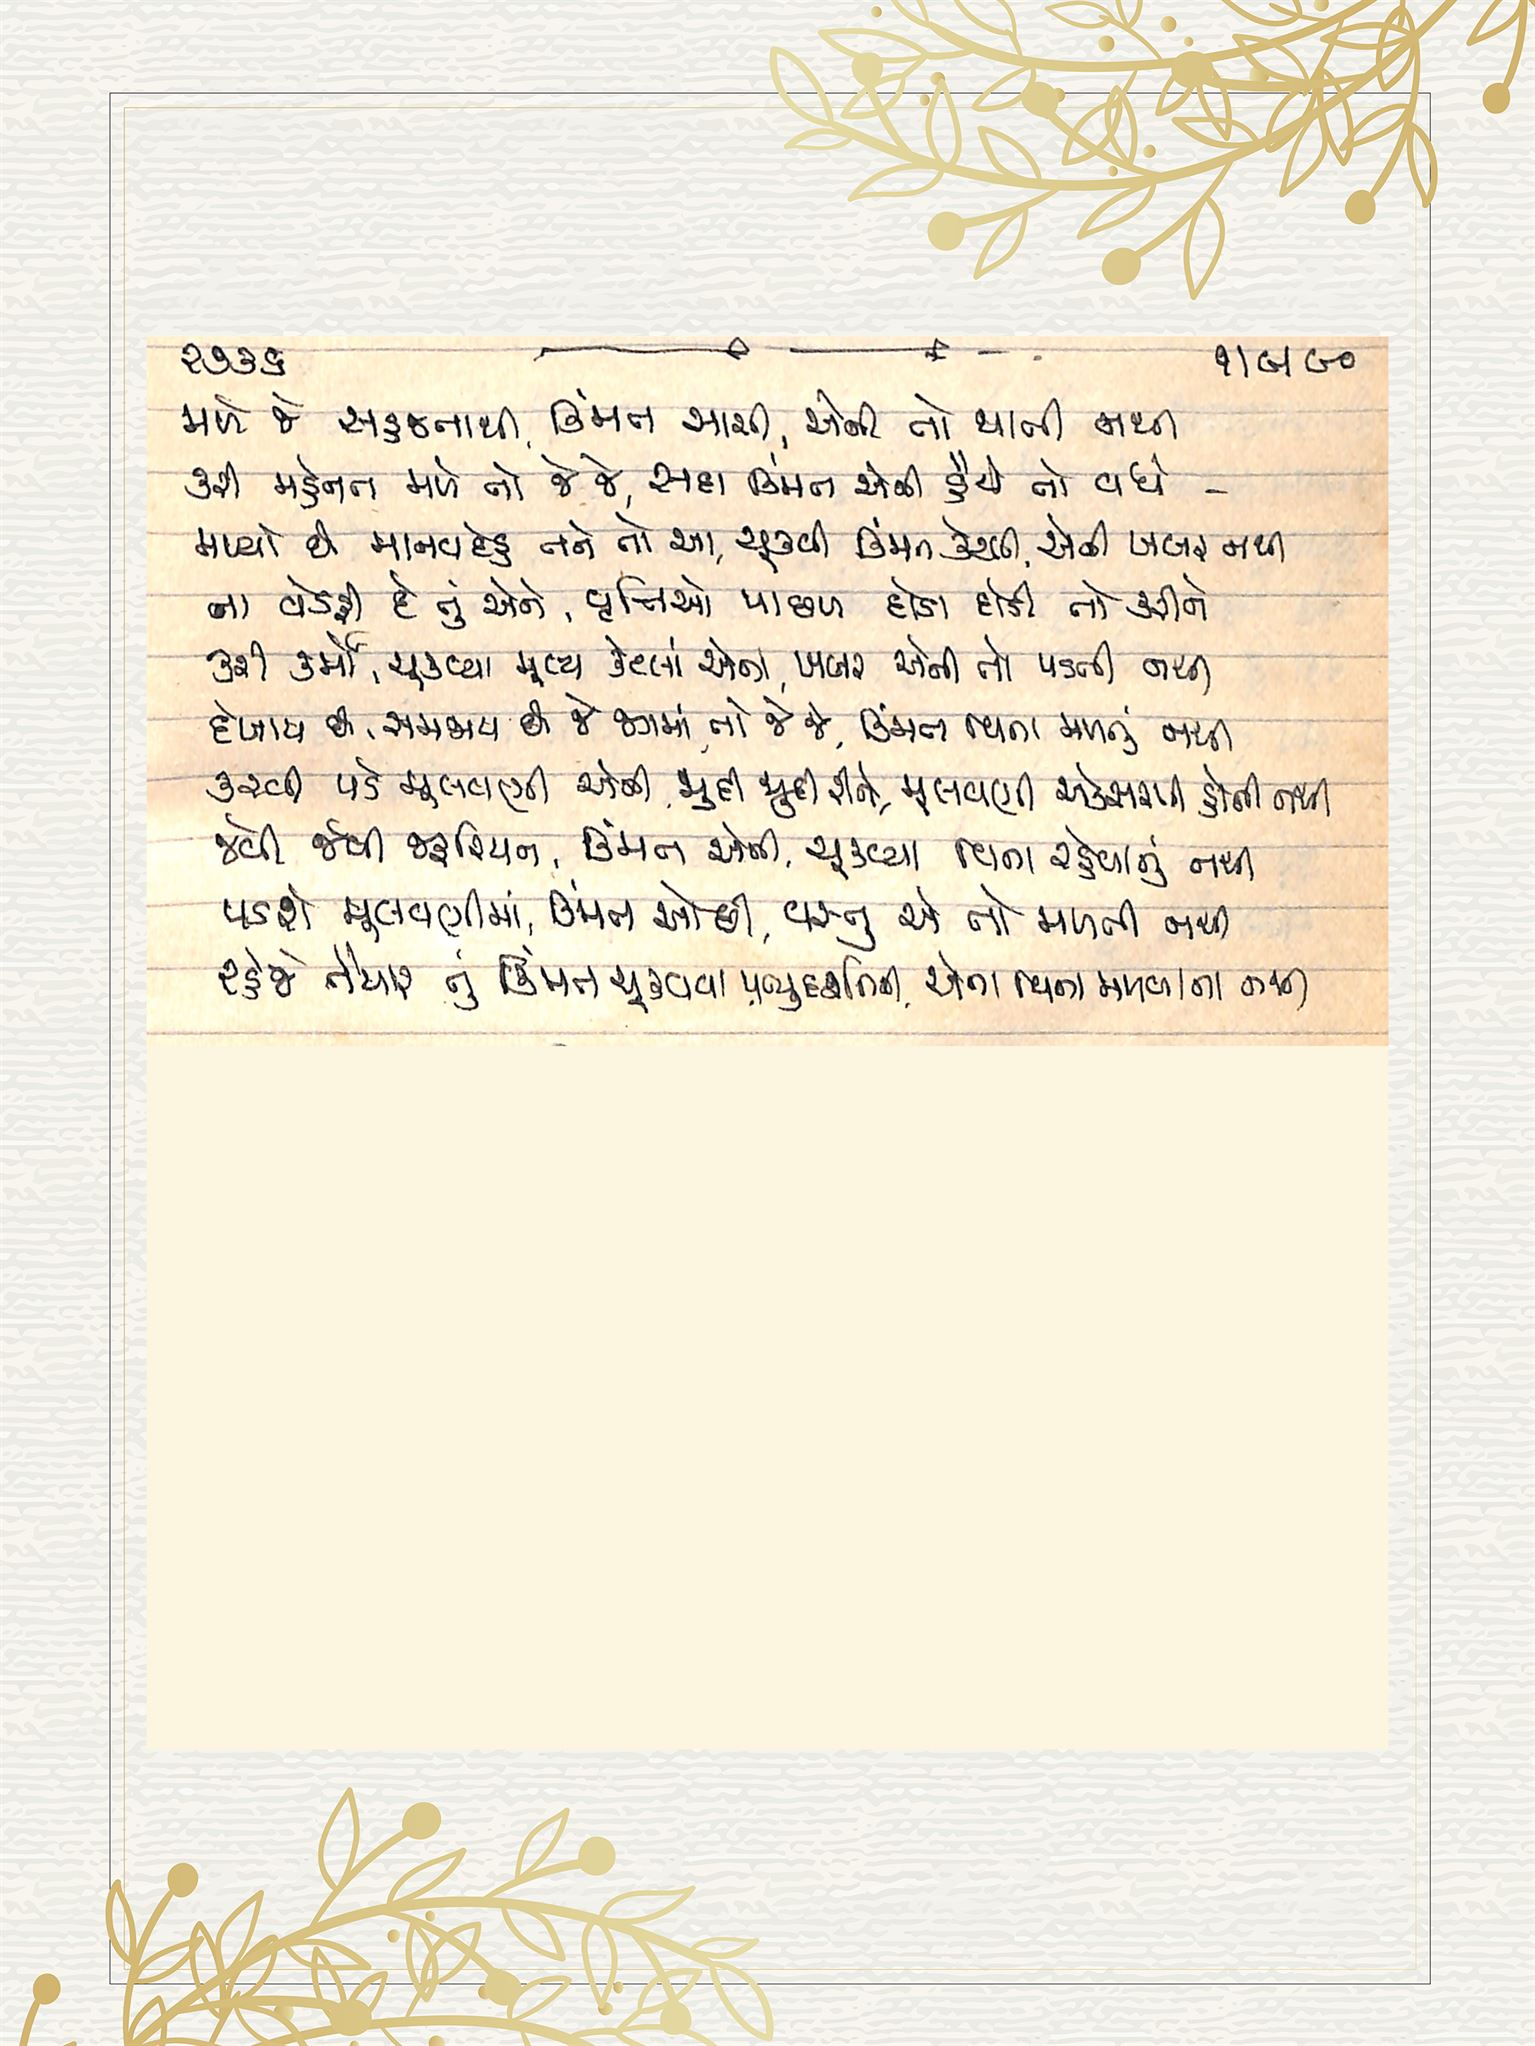 ૨૭૩૬ ૧/૯/૯૦
મળે જે સહજતાથી, કિંમત સાચી, એની તો થાતી નથી
કરી મહેનત મળે તો જે જે, સદા કિંમત એની હૈયે તો વધે -
મળ્યો છે માનવદેહ તને તો આ, ચૂકવી કિંમત કેટલી, એની ખબર નથી
ના વેડફી દે તું એને, વૃત્તિઓ પાછળ દોડા દોડી તો કરીને
કરી કર્મો, ચૂકવ્યા મૂલ્ય કેટલાં એના, ખબર એની તો પડતી નથી
દેખાય છે, સમજાય છે જે જગમાં, તો જે જે, કિંમત વિના મળતું નથી
કરવી પડે મૂલવણી એની, જુદી જુદી રીતે, મૂલવણી એકસરખી હોતી નથી
જેવી જેવી જરૂરિયાત, કિંમત એની, ચૂકવ્યા વિના રહેવાતું નથી
પડશે મૂલવણીમાં, કિંમત ઓછી, વસ્તુ એ તો મળતી નથી
રહેજે તૈયાર તું કિંમત ચૂકવવા પ્રભુદર્શનની, એના વિના મળવાના નથી